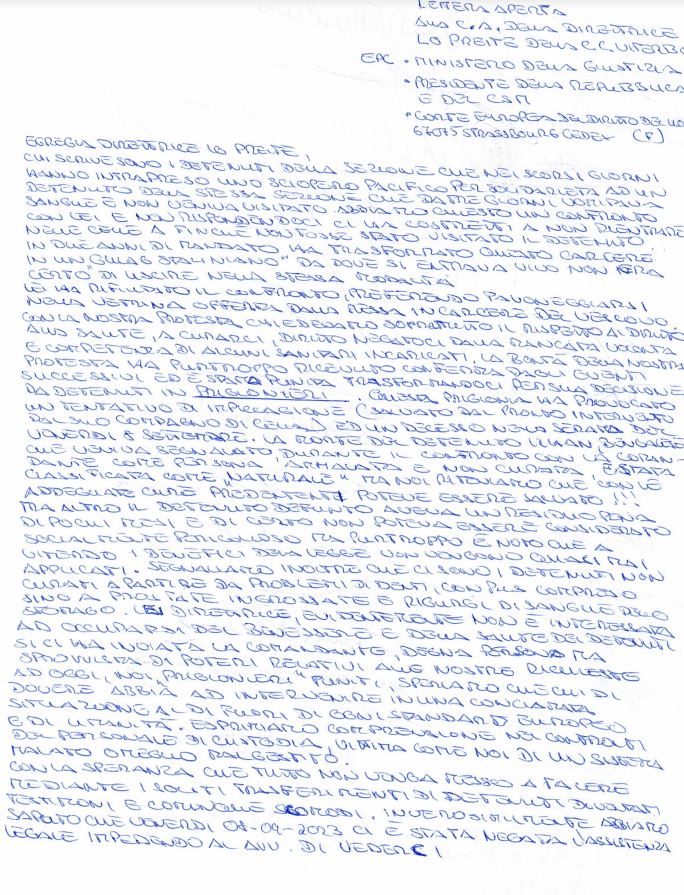 LETTERA APERTA
ALLA C.A. DELLA DIRETTRICE
LO PREITE DELLA C.C. VITERBO
EPC • MINISTERO DELLA GIUSTIZIA
• PRESIDENTE DELLA REPUBBLICA
E DEL CSM
• CORTE EUROPEA DEL DIRITTO DELL'UO
67075 STRASSBOURG CEDEX (F)
EGREGIA DIRETTRICE LO PREITE,
CHI SCRIVE SONO I DETENUTI DELLA SEZIONE CHE NEI SCORSI GIORNI
HANNO INTRAPRESO UNO SCIOPERO PACIFICO PER SOLIDARIETÀ AD UN
DETENUTO DELLA STESSA SEZIONE CHE DA TRE GIORNI VOMITAVA
SANGUE E NON VENIVA VISITATO. ABBIAMO CHIESTO UN CONFRONTO
CON LEI E NON RISPONDENDOCI CI HA COSTRETTI A NON RIENTRARE
NELLE CELLE A FINCHÉ NON FOSSE STATO VISITATO IL DETENUTO
IN DUE ANNI DI MANDATO HA TRASFORMATO QUESTO CARCERE
IN UN "GULAG STALINIANO" DA DOVE SI ENTRAVA VIVO NON ERA
CERTO DI USCIRE NELLA STESSA MODALITÀ
LEI HA RIFIUTATO IL CONFRONTO, PREFERENDO PAVONEGGIARSI
NELLA VETRINA OFFERTA DALLA MESSA IN CARCERE DEL VESCOVO.
CON LA NOSTRA PROTESTA CHIEDEVAMO SOPRATTUTTO IL RISPETTO AL DIRITTO
ALLA SALUTE, A CURARCI, DIRITTO NEGATOCI DALLA MANCATA VOLONTÀ
E COMPETENZA DI ALCUNI SANITARI INCARICATI. LA BONTÀ DELLA NOSTRA
PROTESTA HA PURTROPPO RICEVUTO CONFERMA DAGLI EVENTI
SUCCESSIVI ED È STATA PUNITA TRASFORMANDOCI PER SUA DECISIONE
DA DETENUTI IN PRIGIONIERI. QUESTA PRIGIONIA HA PROVOCATO
UN TENTATIVO DI IMPICCAGIONE (SALVATO DAL PRONTO INTERVENTO
DAL SUO COMPAGNO DI CELLA) ED UN DECESSO NELLA SERATA DEL
VENERDÌ 8 SETTEMBRE. LA MORTE DEL DETENUTO
CHE VENIVA SEGNALATO, DURANTE IL CONFRONTO CON LA COMAN-
DANTE COME PERSONA AMMALATA E NON CURATA È STATA
CLASSIFICATA COME "NATURALE" MA NOI RITENIAMO CHE CON LE
ADEGUATE CURE PRECEDENTI POTEVA ESSERE SALVATO!!!
TRA ALTRO IL DETENUTO DEFUNTO AVEVA UN RESIDUO PENA
DI POCHI MESI E DI CERTO NON POTEVA ESSERE CONSIDERATO
SOCIALMENTE PERICOLOSO MA PURTROPPO È NOTO CHE A
VITERBO I BENEFICI DELLA LEGGE NON VENGONO QUASI MAI
APPLICATI. SEGNALIAMO INOLTRE CHE CI SONO I DETENUTI NON
CURATI A PARTIRE DA PROBLEMI DI DENTI, CON PUS COMPRESO
SINO A PROSTATE INGROSSATE E RIGURGI DI SANGUE DALLO
STOMAGO. LEI DIRETTRICE, EVIDENTEMENTE NON È INTERESSATA
AD OCCUPARSI DEL BENESSERE E DELLA SALUTE DEI DETENUTI
SI CI HA INVIATA LA COMANDANTE, DEGNA PERSONA MA
SPROVVISTA DI POTERI RELATIVI ALLE NOSTRE RICHIESTE
AD OGGI, NOI, "PRIGIONIERI" PUNITI, SPERIAMO CHE CHI DI
DOVERE ABBIA AD INTERVENIRE IN UNA CONCLAMATA
SITUAZIONE AL DI FUORI DI OGNI STANDARD EUROPEO
E DI UMANITÀ. ESPRIMIAMO COMPRENSIONE NEI CONFRONTI
DEL PERSONALE DI CUSTODIA, VITTIMA COME NOI DI UN SISTEMA
MALATO O MEGLIO MALGESTITO.
CON LA SPERANZA CHE TUTTO NON VENGA MESSO A TACERE
MEDIANTE I SOLITI TRASFERIMENTI DI DETENUTI DIVENTATI
TESTIMONI E COMUNQUE SCOMODI. INVEROSIMILMENTE ABBIAMO
SAPUTO CHE VENERDÌ 08-09-2023 CI È STATA NEGATA L'ASSISTENZA
LEGALE IMPEDENDO AL AVV. DI VEDERCI